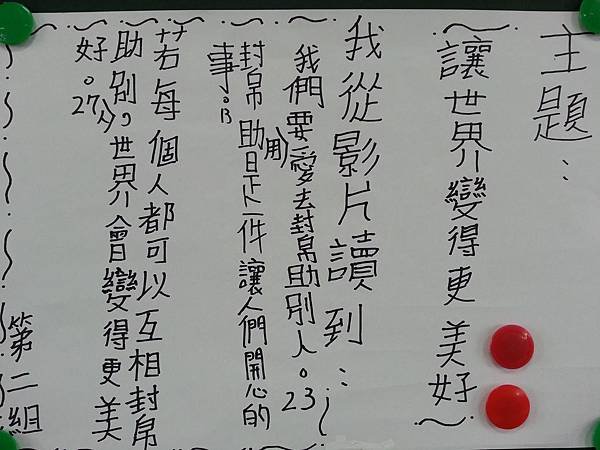 主題：
讓世界變得更美好
我從影片讀到：
我們要用愛去幫助別人。23
幫助是一件讓人們開心的
事。13
若每個人都可以互相幫
助別人，世界會變得更美
好。27
第二組